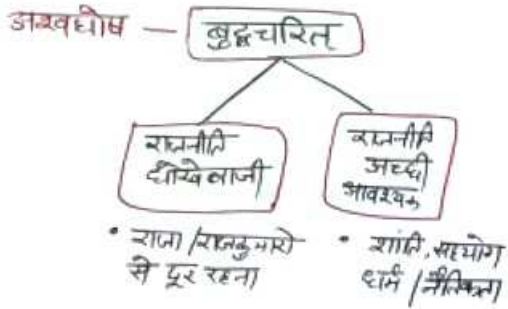 अश्वघोष — बुद्धचरित्
राजनीति
धोखेबाजी
राजनीति
अच्छी
आवश्यक
• राजा/राजकुमारों
से दूर रहना
• शांति, सहयोग
धर्म/नैतिकता